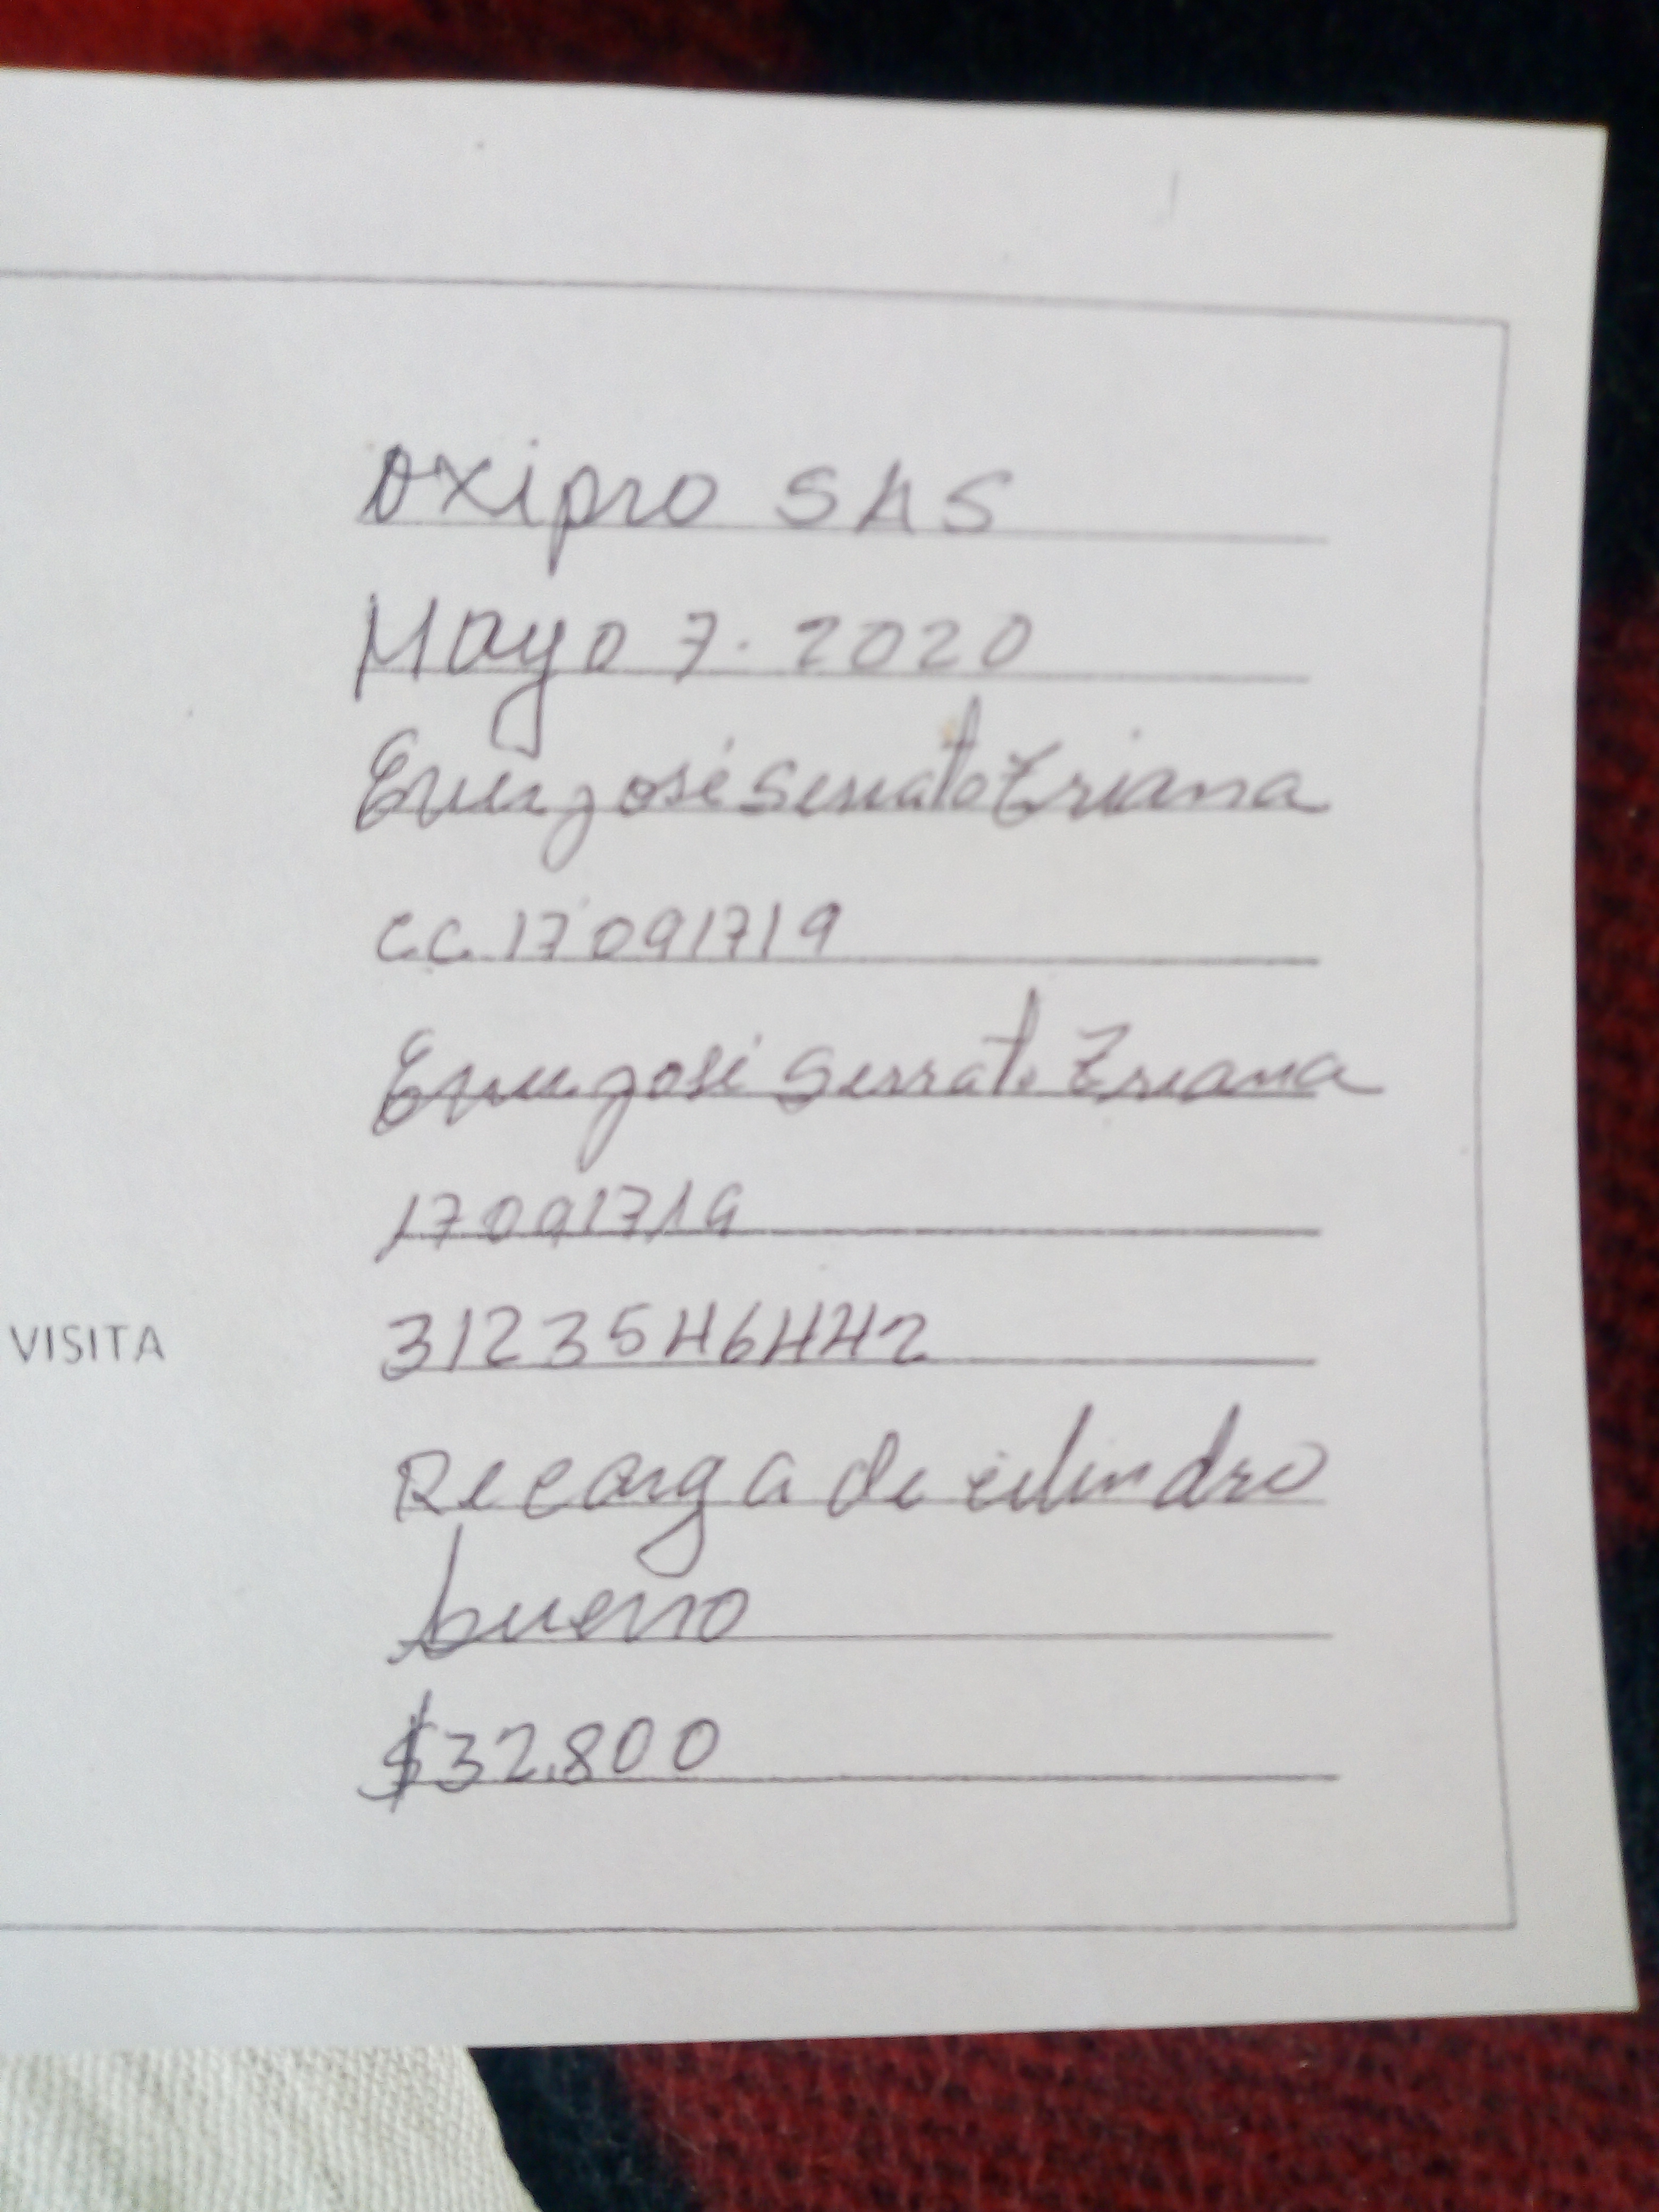 Oxipro SAS
Mayo 7. 2020
José Serrato Triana
c.c. 17091719
José Serrato Triana
17091719
VISITA 3123546442
Recarga de cilindro
bueno
$32.800